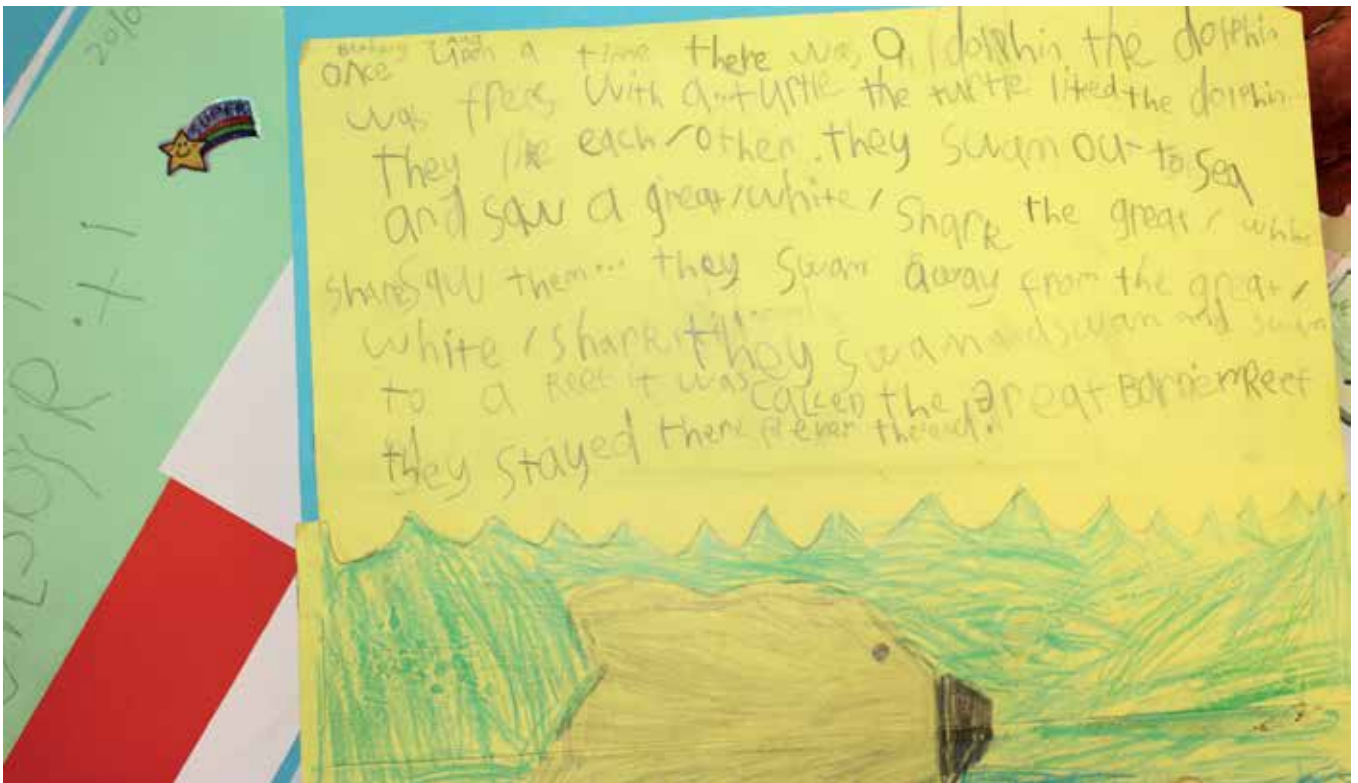 20/0
SUPER
once upon a time there was a / dolphin the dolphin
was with a turtle the turtle liked the dolphin...
they each / other. they swam out to sea
and saw a great / white / shark the great / white
shark saw them... they swam away from the great /
white / shark they swam and swam and swam
to a Reef it was called the great Barrier Reef
they stayed there ever the end.